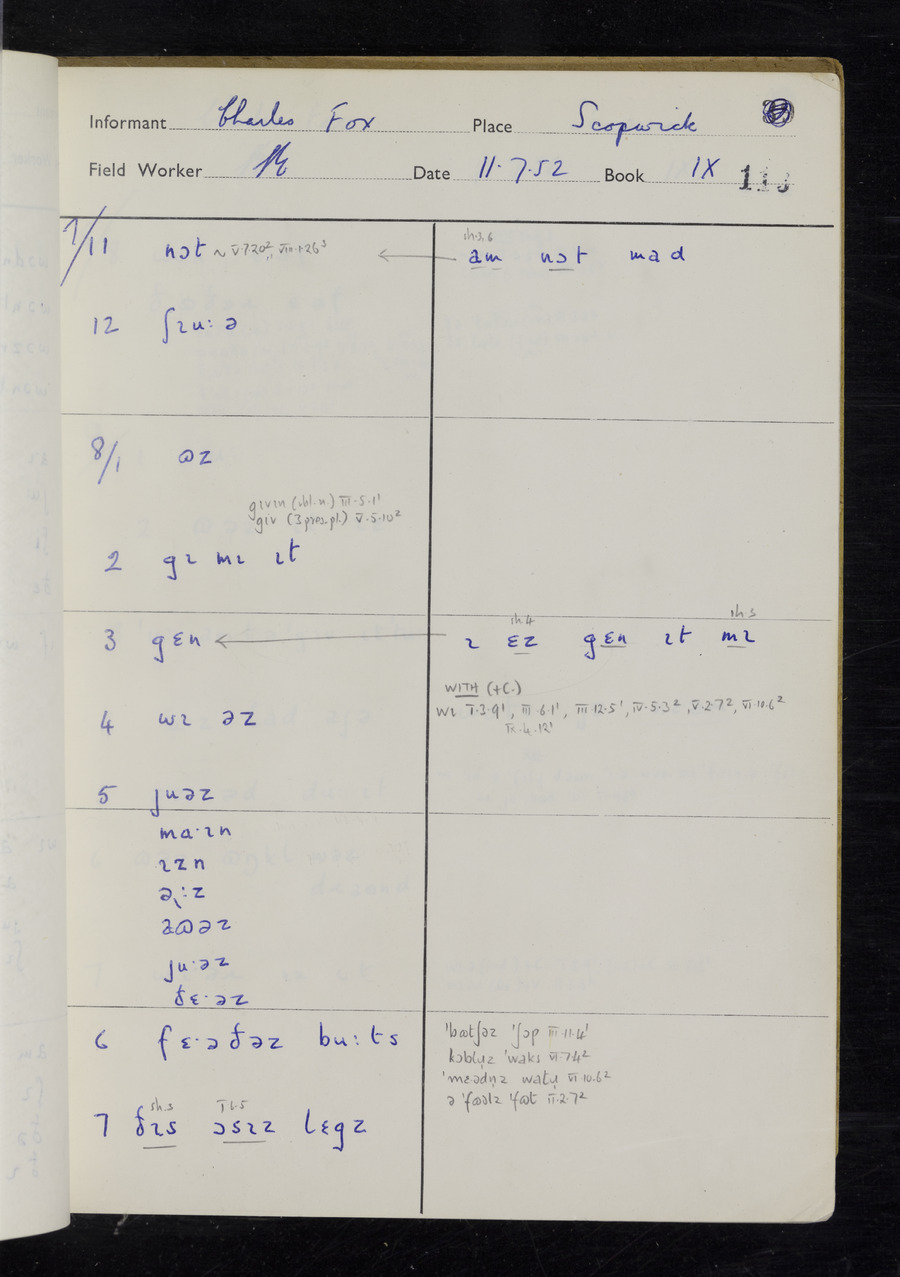 Informant Charles Fox Place Scopwick
Field Worker Date 11.7.52 Book IX
7/11 nɔt ~ V.7.20², VIII.1.26³
sh.3,6
am nɔt mad
12 ʃɪu:ə
8/1 ɷz
gɪvɪn (vbl.n.) III.5.1¹
giv (3 pres.pl.) V.5.10²
2 gɪ mɪ ɪt
3 gɛn
sh.4 sh.5
ɪ ɛz gɛn ɪt mɪ
WITH (+C.)
4 wɪ əz
wɪ I.3.9¹, III.6.1¹, III.12.5¹, IV.5.3², V.2.7², VI.10.6²
IX.4.12¹
5 juəz
ma·ɪn
ɪzn
ə˞:z
aɷəz
ju·əz
ðɛ·əz
6 fɛ·əðəz bu:ts
ˈbɷtʃəz ˈʃɔp III.11.4¹
kɔblʯz ˈwaks VI.7.4²
ˈmɛədn̩z watʯ VI.10.6²
ə ˈfɷəlz ˈfɷt II.2.7²
sh.3
7 ðɪs ɔsɪz lɛgz